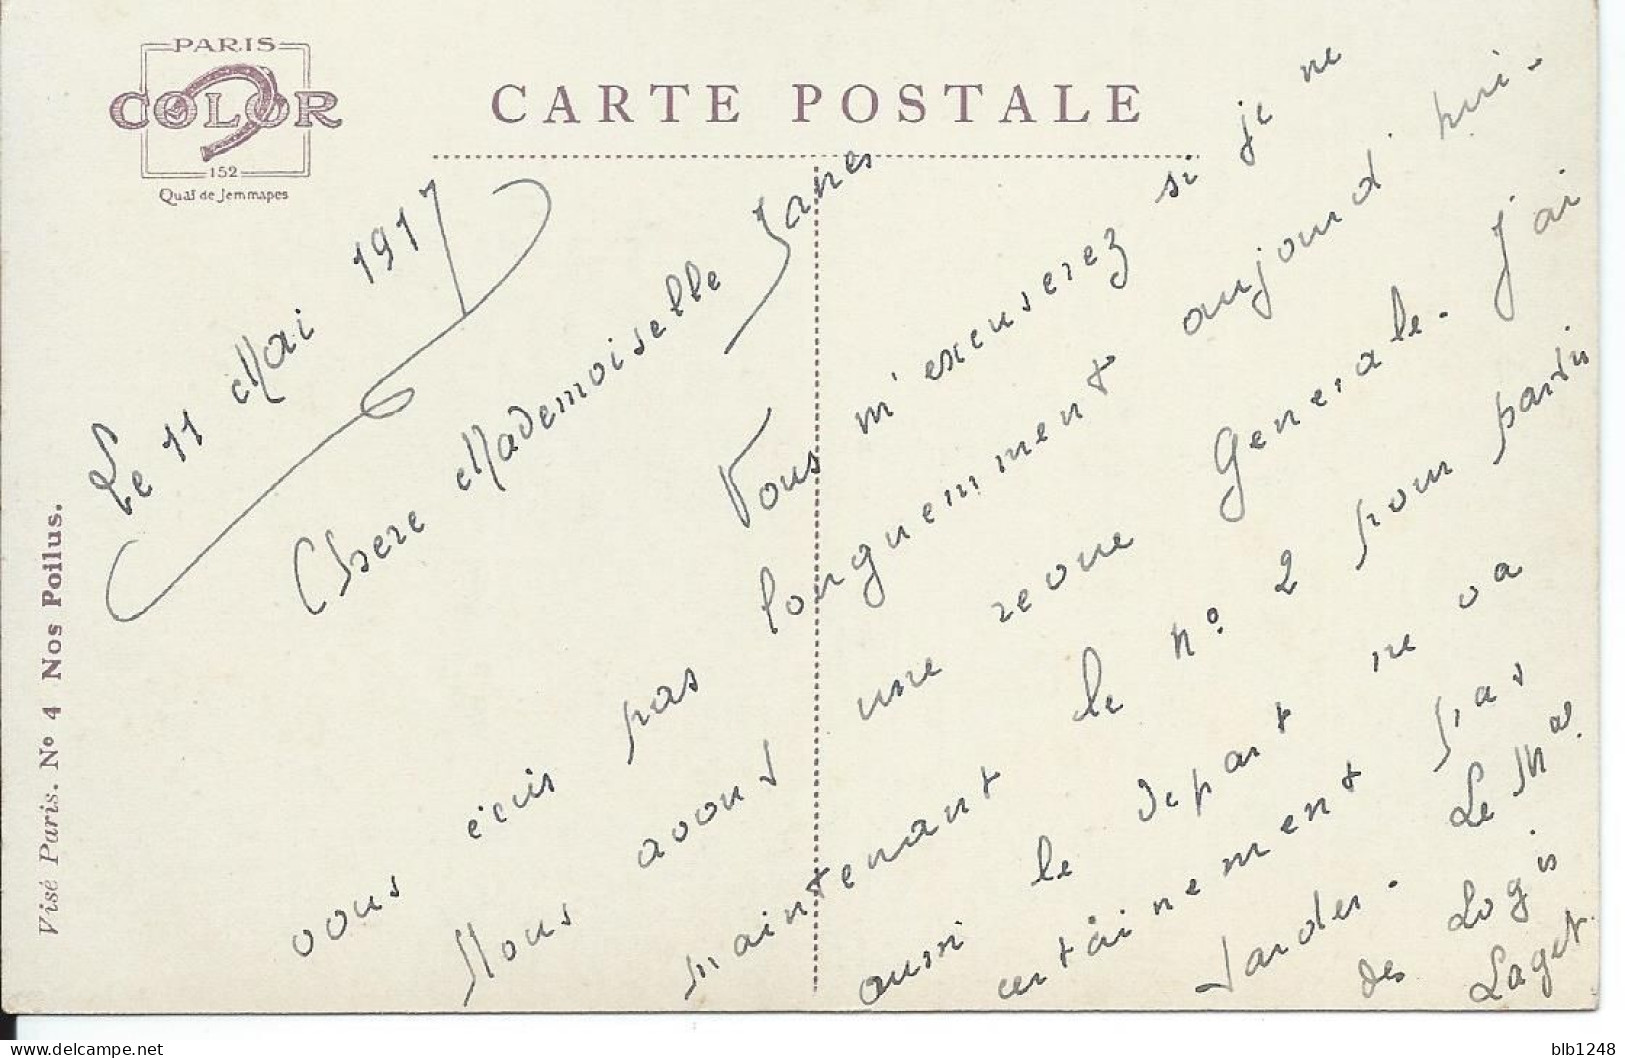 PARIS
COLOR
152
Quai de Jemmapes
CARTE POSTALE
Visé Paris. Nº 4 Nos Poilus.
Le 11 Mai 1917
Chere Mademoiselle Janes
Vous m'excuserez si je ne
vous écris pas longuemment aujourd'hui-
Nous avons une revue Generale. J'ai
maintenant le nº 2 pour partir
aussi le depart ne va
certainement pas
tarder. Le Mal
des Logis
Laget
blb1248
delcampe.net